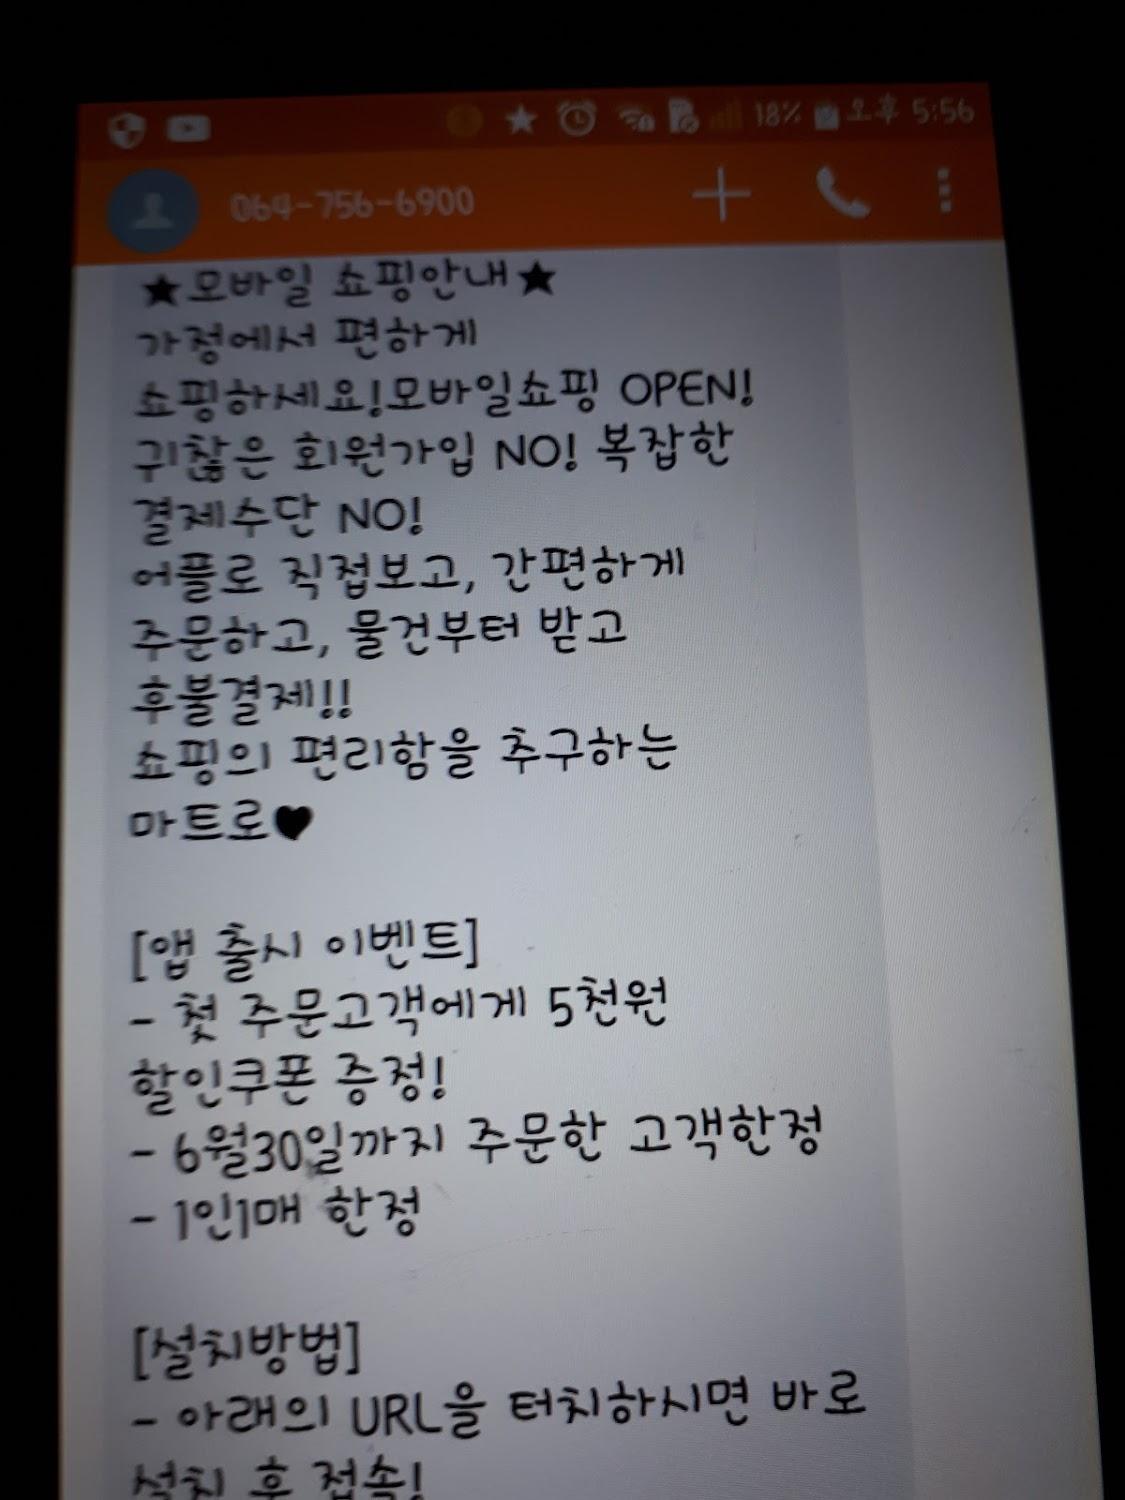 18% 오후 5:56
064-756-6900
★모바일 쇼핑안내★
가정에서 편하게
쇼핑하세요!모바일쇼핑 OPEN!
귀찮은 회원가입 NO! 복잡한
결제수단 NO!
어플로 직접보고, 간편하게
주문하고, 물건부터 받고
후불결제!!
쇼핑의 편리함을 추구하는
마트로♥
[앱 출시 이벤트]
- 첫 주문고객에게 5천원
할인쿠폰 증정!
- 6월30일까지 주문한 고객한정
- 1인1매 한정
[설치방법]
- 아래의 URL을 터치하시면 바로
설치 후 접속!